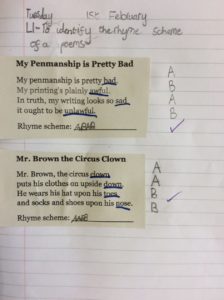 Tuesday 1st February
LI-To identify the rhyme scheme
of a poem
My Penmanship is Pretty Bad
My penmanship is pretty bad. A
My printing's plainly awful. B
In truth, my writing looks so sad A
it ought to be unlawful. B
Rhyme scheme: ABAB
Mr. Brown the Circus Clown
Mr. Brown, the circus clown A
puts his clothes on upside down. A
He wears his hat upon his toes B
and socks and shoes upon his nose. B
Rhyme scheme: AABB